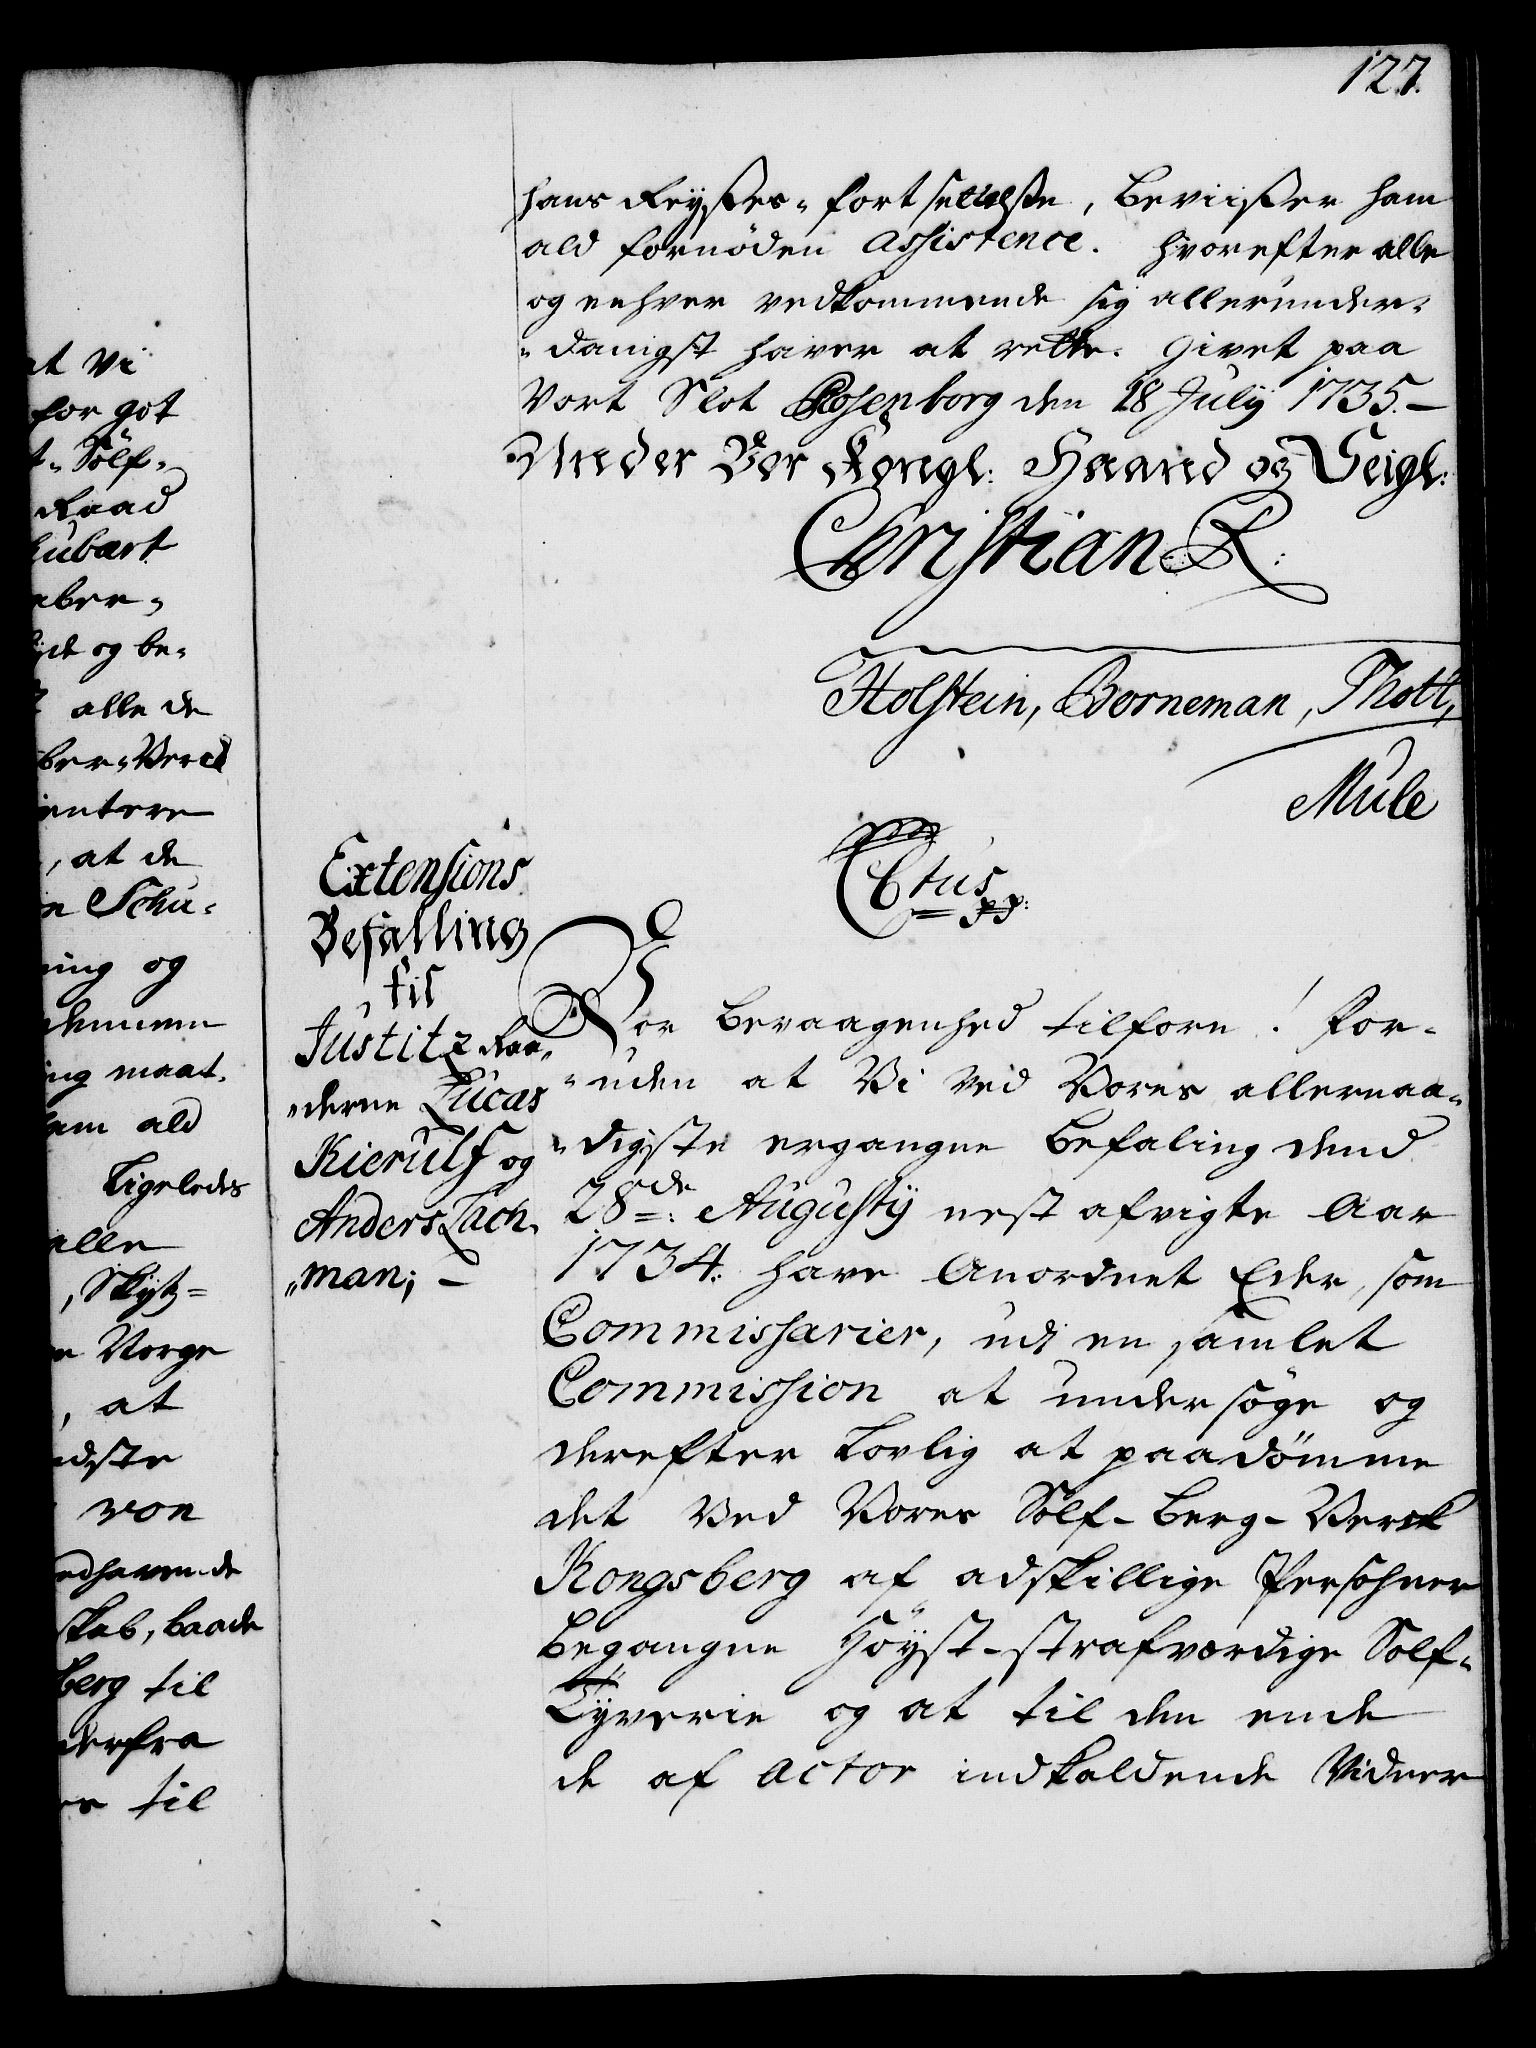 127.
hans Reyßes-fortsettelße, beviißer ham
ald fornöden Assistence. Hvorefter alle
og enhver vedkommende sig allerunder-
-danigst haver at rette. Givet paa
Vort Slot Rosenborg den 18 July 1735. -
Under Vor Kongl: Haand og Seigl:
Christian R:
Holstein, Borneman, Thott,
Mule
Extensions
Befalling
til
Justitz Raa-
-derne Lucas
Kierulf og
Anders Tach-
-man; -
C6tus pp:
Vor bevaagenhed tilforn! For-
-uden at Vi ved Vores allernaa-
-digste ergangne befaling dend
28de: Augusty nest afvigte Aar
1734. have Anordnet Eder, som
Commissarier, udi en samlet
Commission at undersöge og
derefter lovlig at paadömme
det ved Vores Sölf-berg-Verck
Kongsberg af adskillige Persohner
begangne Höyst-strafværdige Sölf-
Tyverie og at til den ende
de af Actor indkaldende Vidner
at Vi
for got
t-Sölf-
Raad
hubart
aber-
yde og be-
alle de
ber-Verck
entere
, at de
n Schu-
ning og
demmen
ing maat-
ham ald
Ligeledes
alle
, Skytz-
n Norge
, at
idste
von
edhavende
skab, baade
berg til
derfra
er til